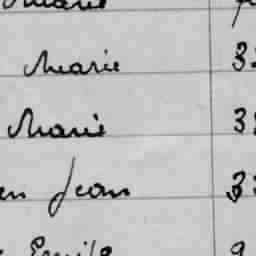 Marie
Marie 3
Marie 3
en Jean 3
Emile 9